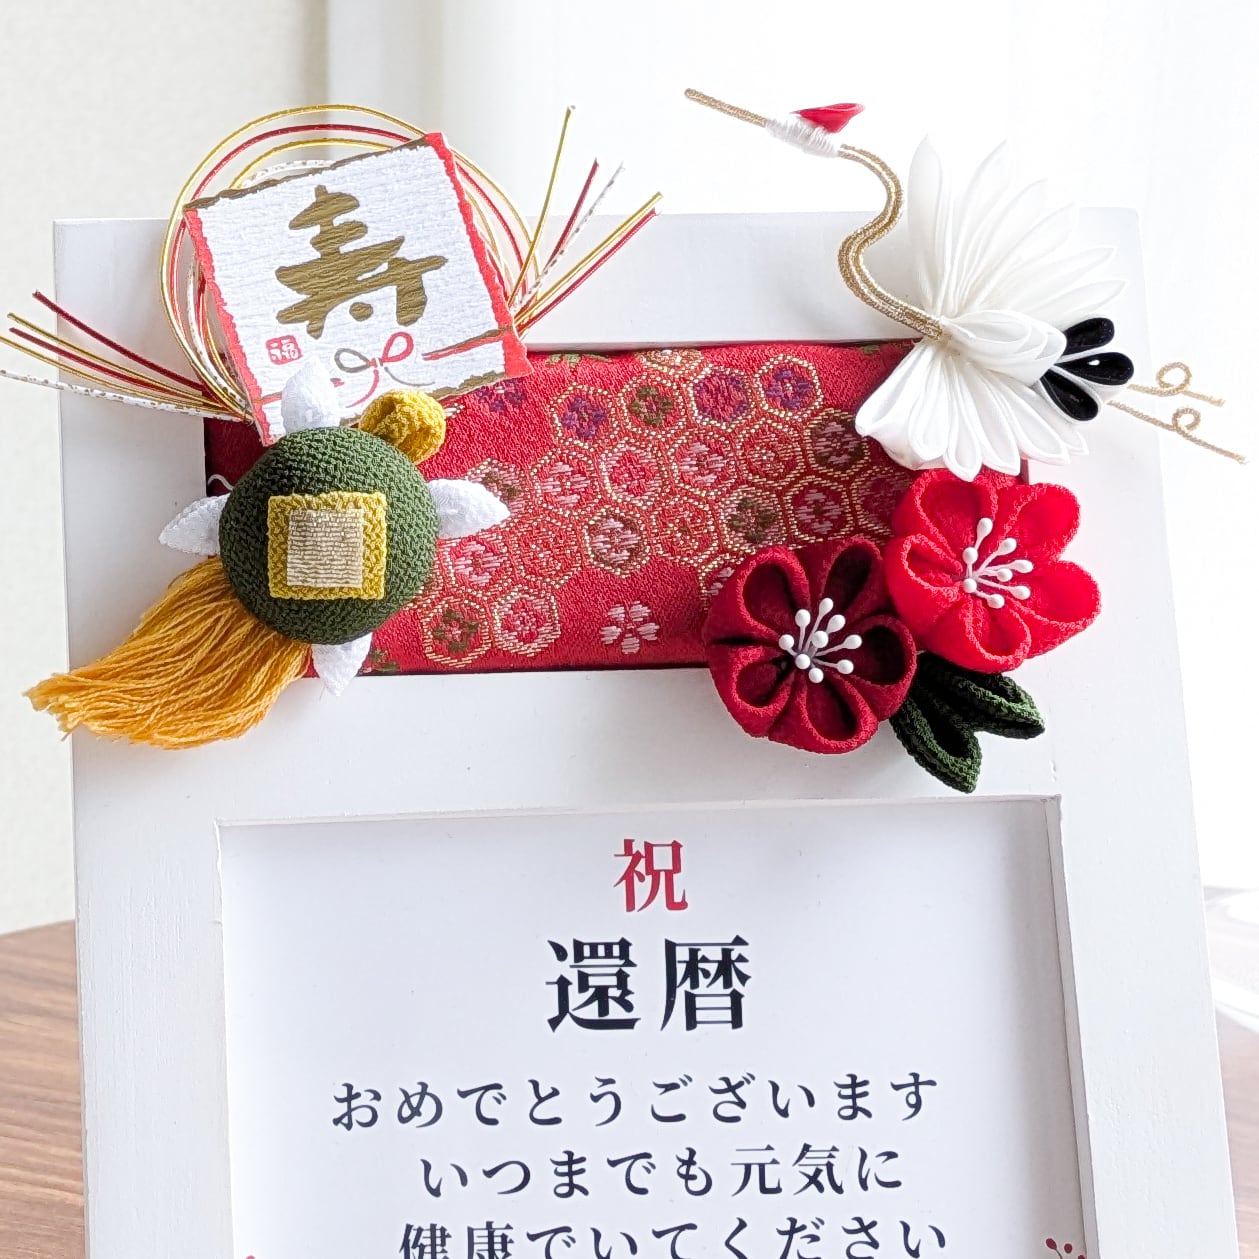 寿
福
祝
還暦
おめでとうございます
いつまでも元気に
健康でいてください